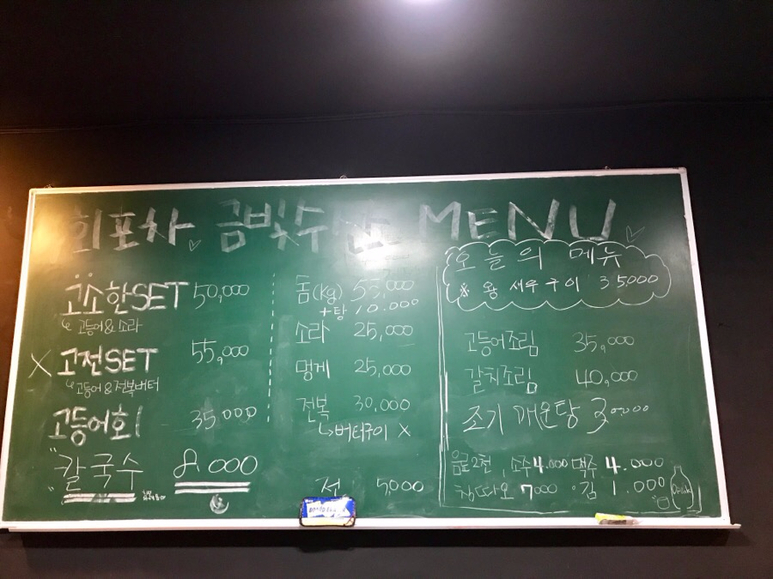 회포차 금빛수 MENU
고소한SET 50,000
↳ 고등어&소라
X 고전SET 55,000
↳ 고등어&전복버터
고등어회 35000
"칼국수 8000
돔(kg) 55,000
+탕 10.000
소라 25,000
멍게 25,000
전복 30,000
↳버터구이 X
전 5,000
오늘의 메뉴
※ 왕 새우구이 35000
고등어조림 35,000
갈치조림 40,000
조기 매운탕 30000
음료2천, 소주4.000 맥주 4.000
칭따오 7000 ·김 1.000
Drink